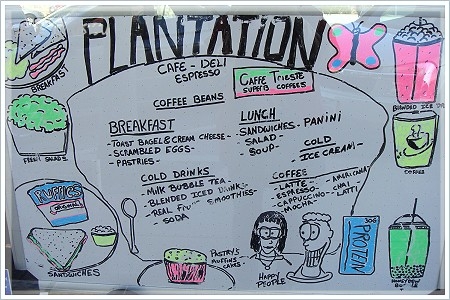 PLANTATION
CAFE - DELI
ESPRESSO
CAFFE TRIESTE
SUPERB COFFEES
COFFEE BEANS
BREAKFAST
BREAKFAST
- TOAST BAGEL & CREAM CHEESE -
- SCRAMBLED EGGS -
- PASTRIES -
LUNCH
SANDWICHES - PANINI
- SALAD -
SOUP -
COLD
ICE CREAM! -
COLD DRINKS
- MILK BUBBLE TEA
- BLENDED ICED DRINKS -
- REAL FRUIT SMOOTHIES -
SODA
COFFEE
- LATTE - AMERICANA
- ESPRESSO - CHAI
- CAPPUCCINO - LATTI
- MOCHA -
BLENDED ICE
COFFEE
FRESH SALADS
RUFFLES
ORIGINAL
SANDWICHES
PASTRY'S
MUFFINS
CAKES -
HAPPY
PEOPLE
306
PROTEIN
HONEYDEW